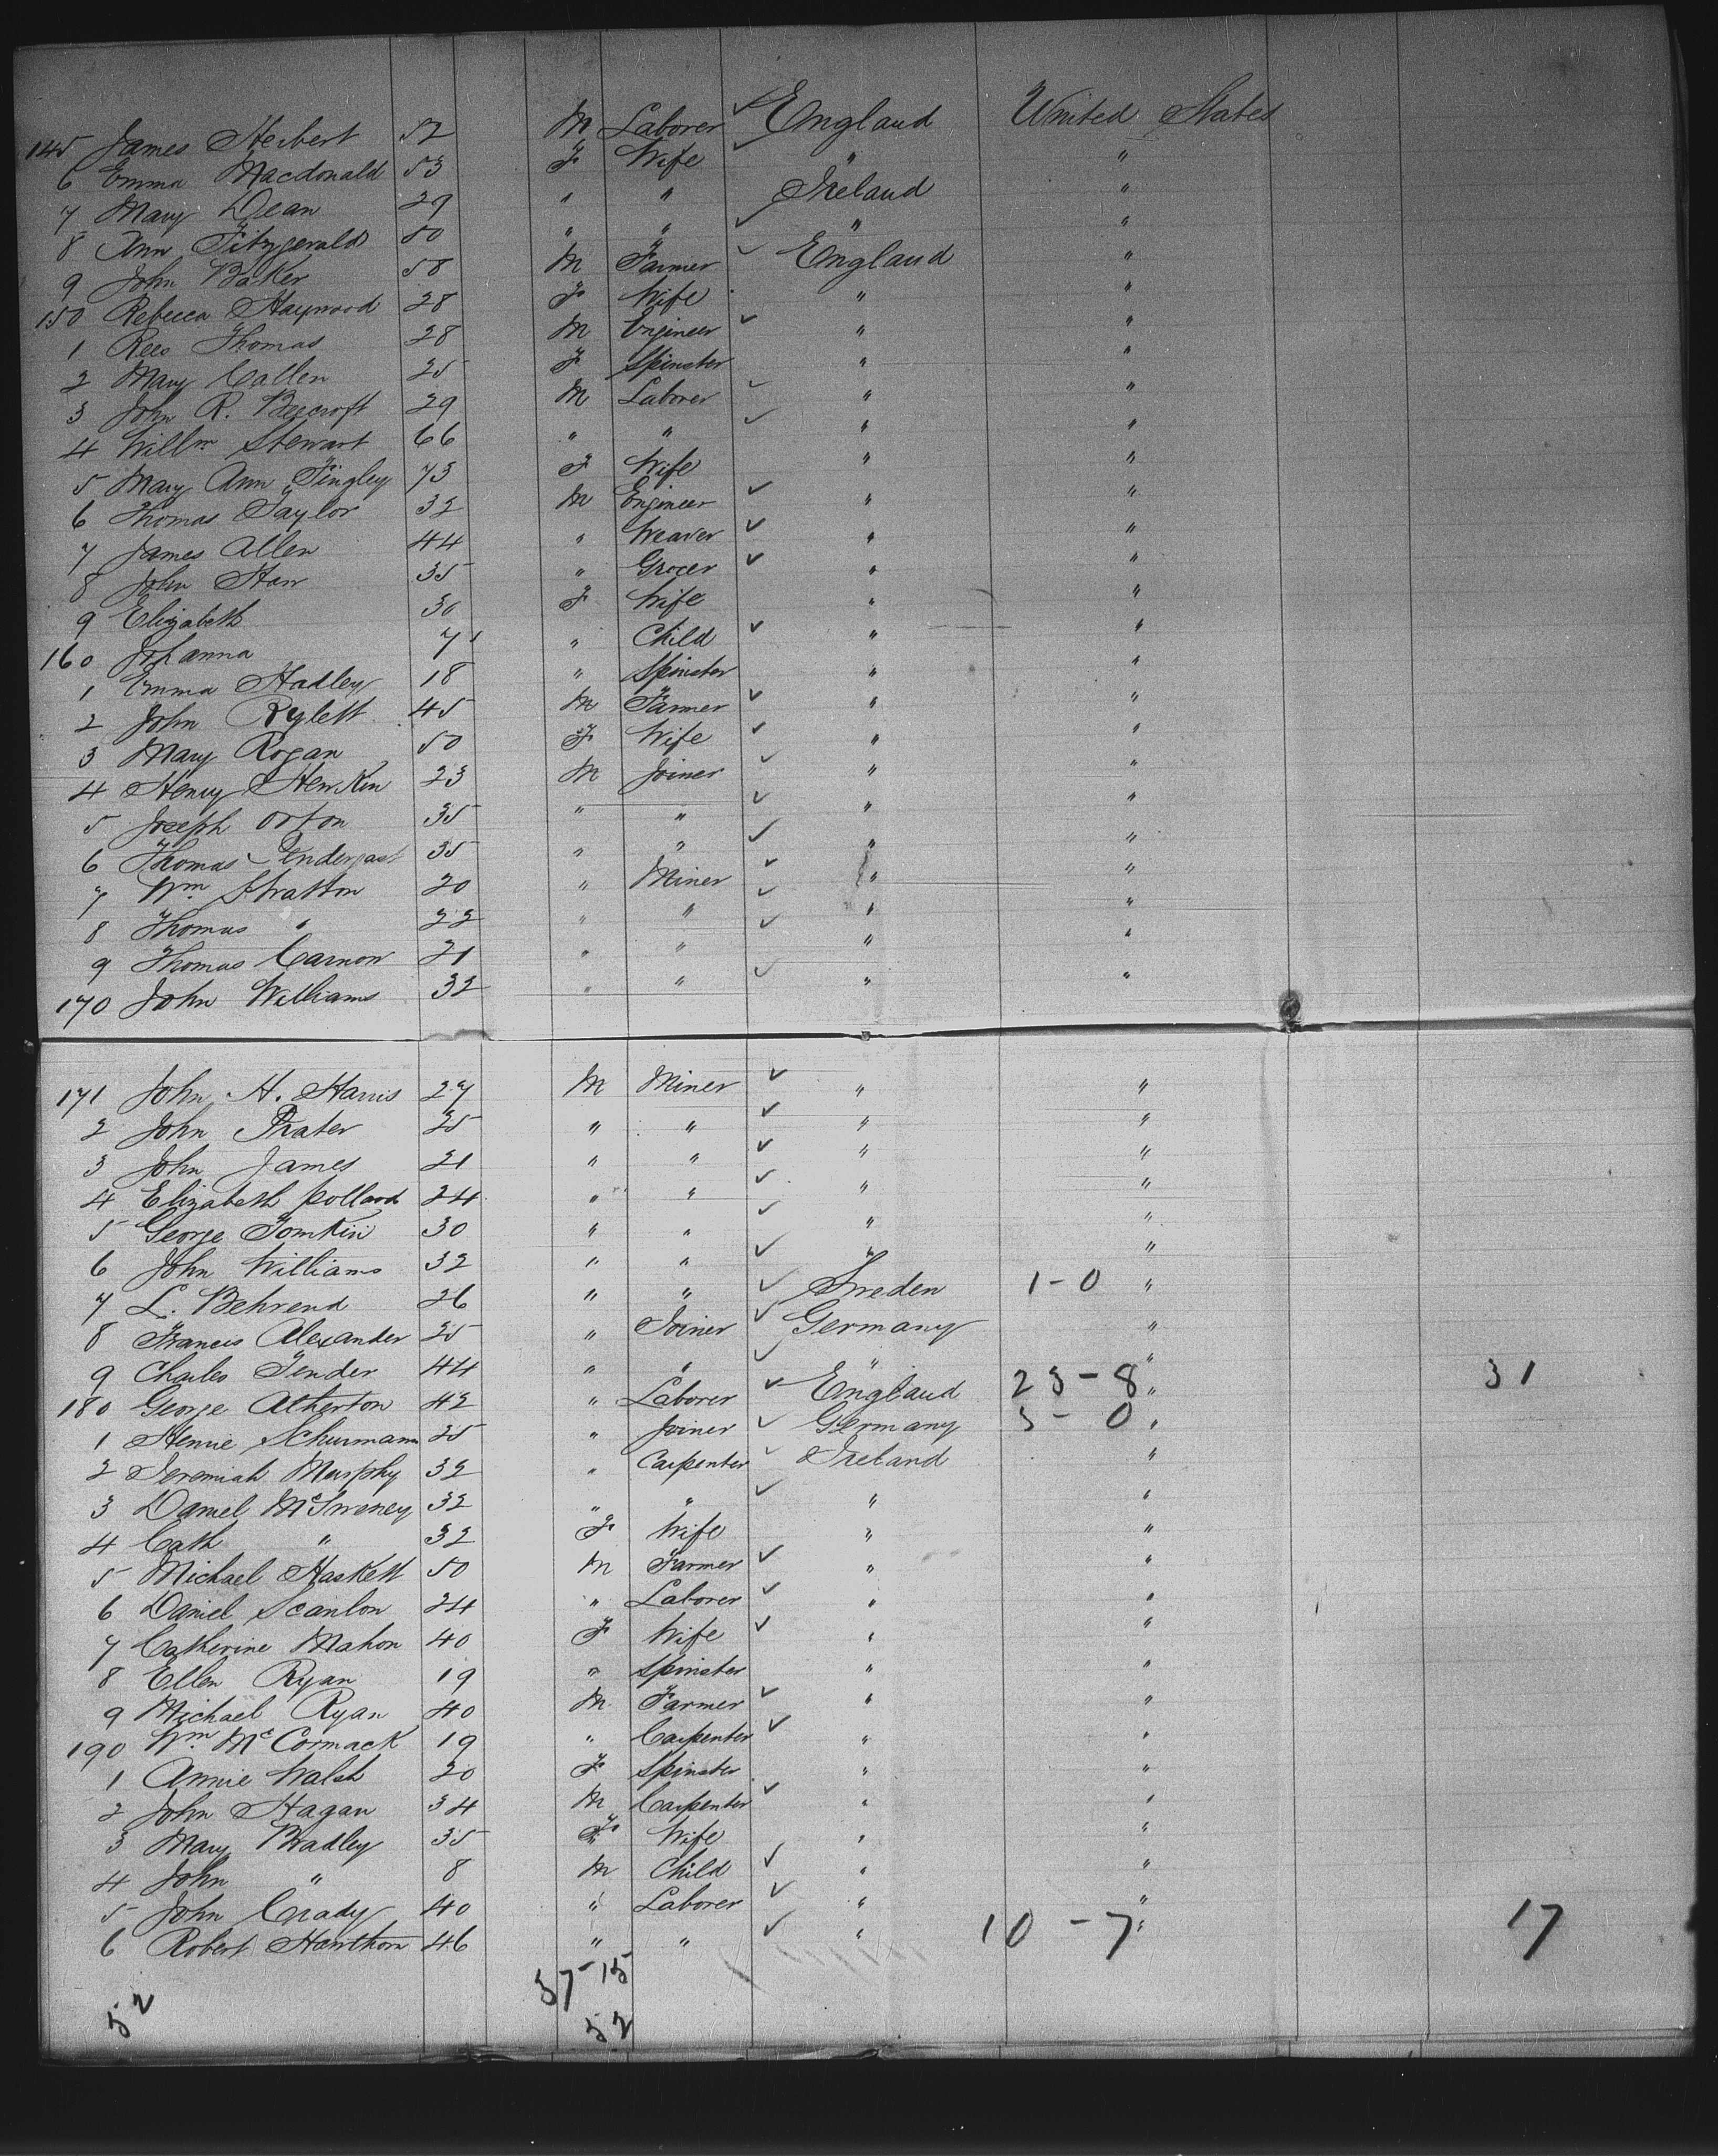 145 James Herbert 52 M Laborer ✓ England United States
6 Emma Macdonald 53 F Wife ✓ " "
7 Mary Dean 29 " " Ireland "
8 Ann Fitzgerald 50 " " ✓ " "
9 John Baker 58 M Farmer ✓ England "
150 Rebecca Haywood 28 F Wife " "
1 Rees Thomas 28 M Engineer ✓ " "
2 Mary Callen 25 F Spinster " "
3 John R. Beecroft 29 M Laborer ✓ " "
4 Willm Stewart 66 " " ✓ " "
5 Mary Ann Tingley 73 F Wife " "
6 Thomas Taylor 32 M Engineer ✓ " "
7 James Allen 44 " Weaver ✓ " "
8 John Haw 35 " Grocer ✓ " "
9 Elizabeth 30 F Wife " "
160 Johanna 7 " Child ✓ " "
1 Emma Hadley 18 " Spinster " "
2 John Rylett 45 M Farmer ✓ " "
3 Mary Rogan 50 F Wife ✓ " "
4 Henry Henkin 23 M Joiner ✓ " "
5 Joseph Orton 35 " " ✓ " "
6 Thomas Pendergast 35 " " ✓ " "
7 Wm Stratton 20 " Miner ✓ " "
8 Thomas " 22 " " ✓ " "
9 Thomas Carnow 21 " " ✓ " "
170 John Williams 32 " " ✓ " "
171 John H. Harris 27 M Miner ✓ " "
2 John Prater 25 " " ✓ " "
3 John James 21 " " ✓ " "
4 Elizabeth Pollard 24 " " ✓ " "
5 George Tomkin 30 " " ✓ " "
6 John Williams 32 " " ✓ " "
7 L. Behrend 26 " " ✓ Sweden 1-0 "
8 Francis Alexander 25 " Joiner ✓ Germany "
9 Charles Tender 44 " " ✓ " " 31
180 George Atherton 42 " Laborer ✓ England 23-8 "
1 Henrie Schurmann 25 " Joiner ✓ Germany 3-0 "
2 Jeremiah Murphy 32 " Carpenter ✓ Ireland "
3 Daniel McSweney 32 " " ✓ " "
4 Cath " 32 F Wife " "
5 Michael Haskett 50 M Farmer ✓ " "
6 Daniel Scanlon 24 " Laborer ✓ " "
7 Catherine Mahon 40 F Wife ✓ " "
8 Ellen Ryan 19 " Spinster " "
9 Michael Ryan 40 M Farmer ✓ " "
190 Wm McCormack 19 " Carpenter ✓ " "
1 Annie Walsh 20 F Spinster " "
2 John Hagan 34 M Carpenter ✓ " "
3 Mary Bradley 35 F Wife " "
4 John " 8 M Child ✓ " "
5 John Grady 40 " Laborer ✓ " "
6 Robert Hawthorn 46 " " ✓ " 10-7 " 17
37-15
52 52